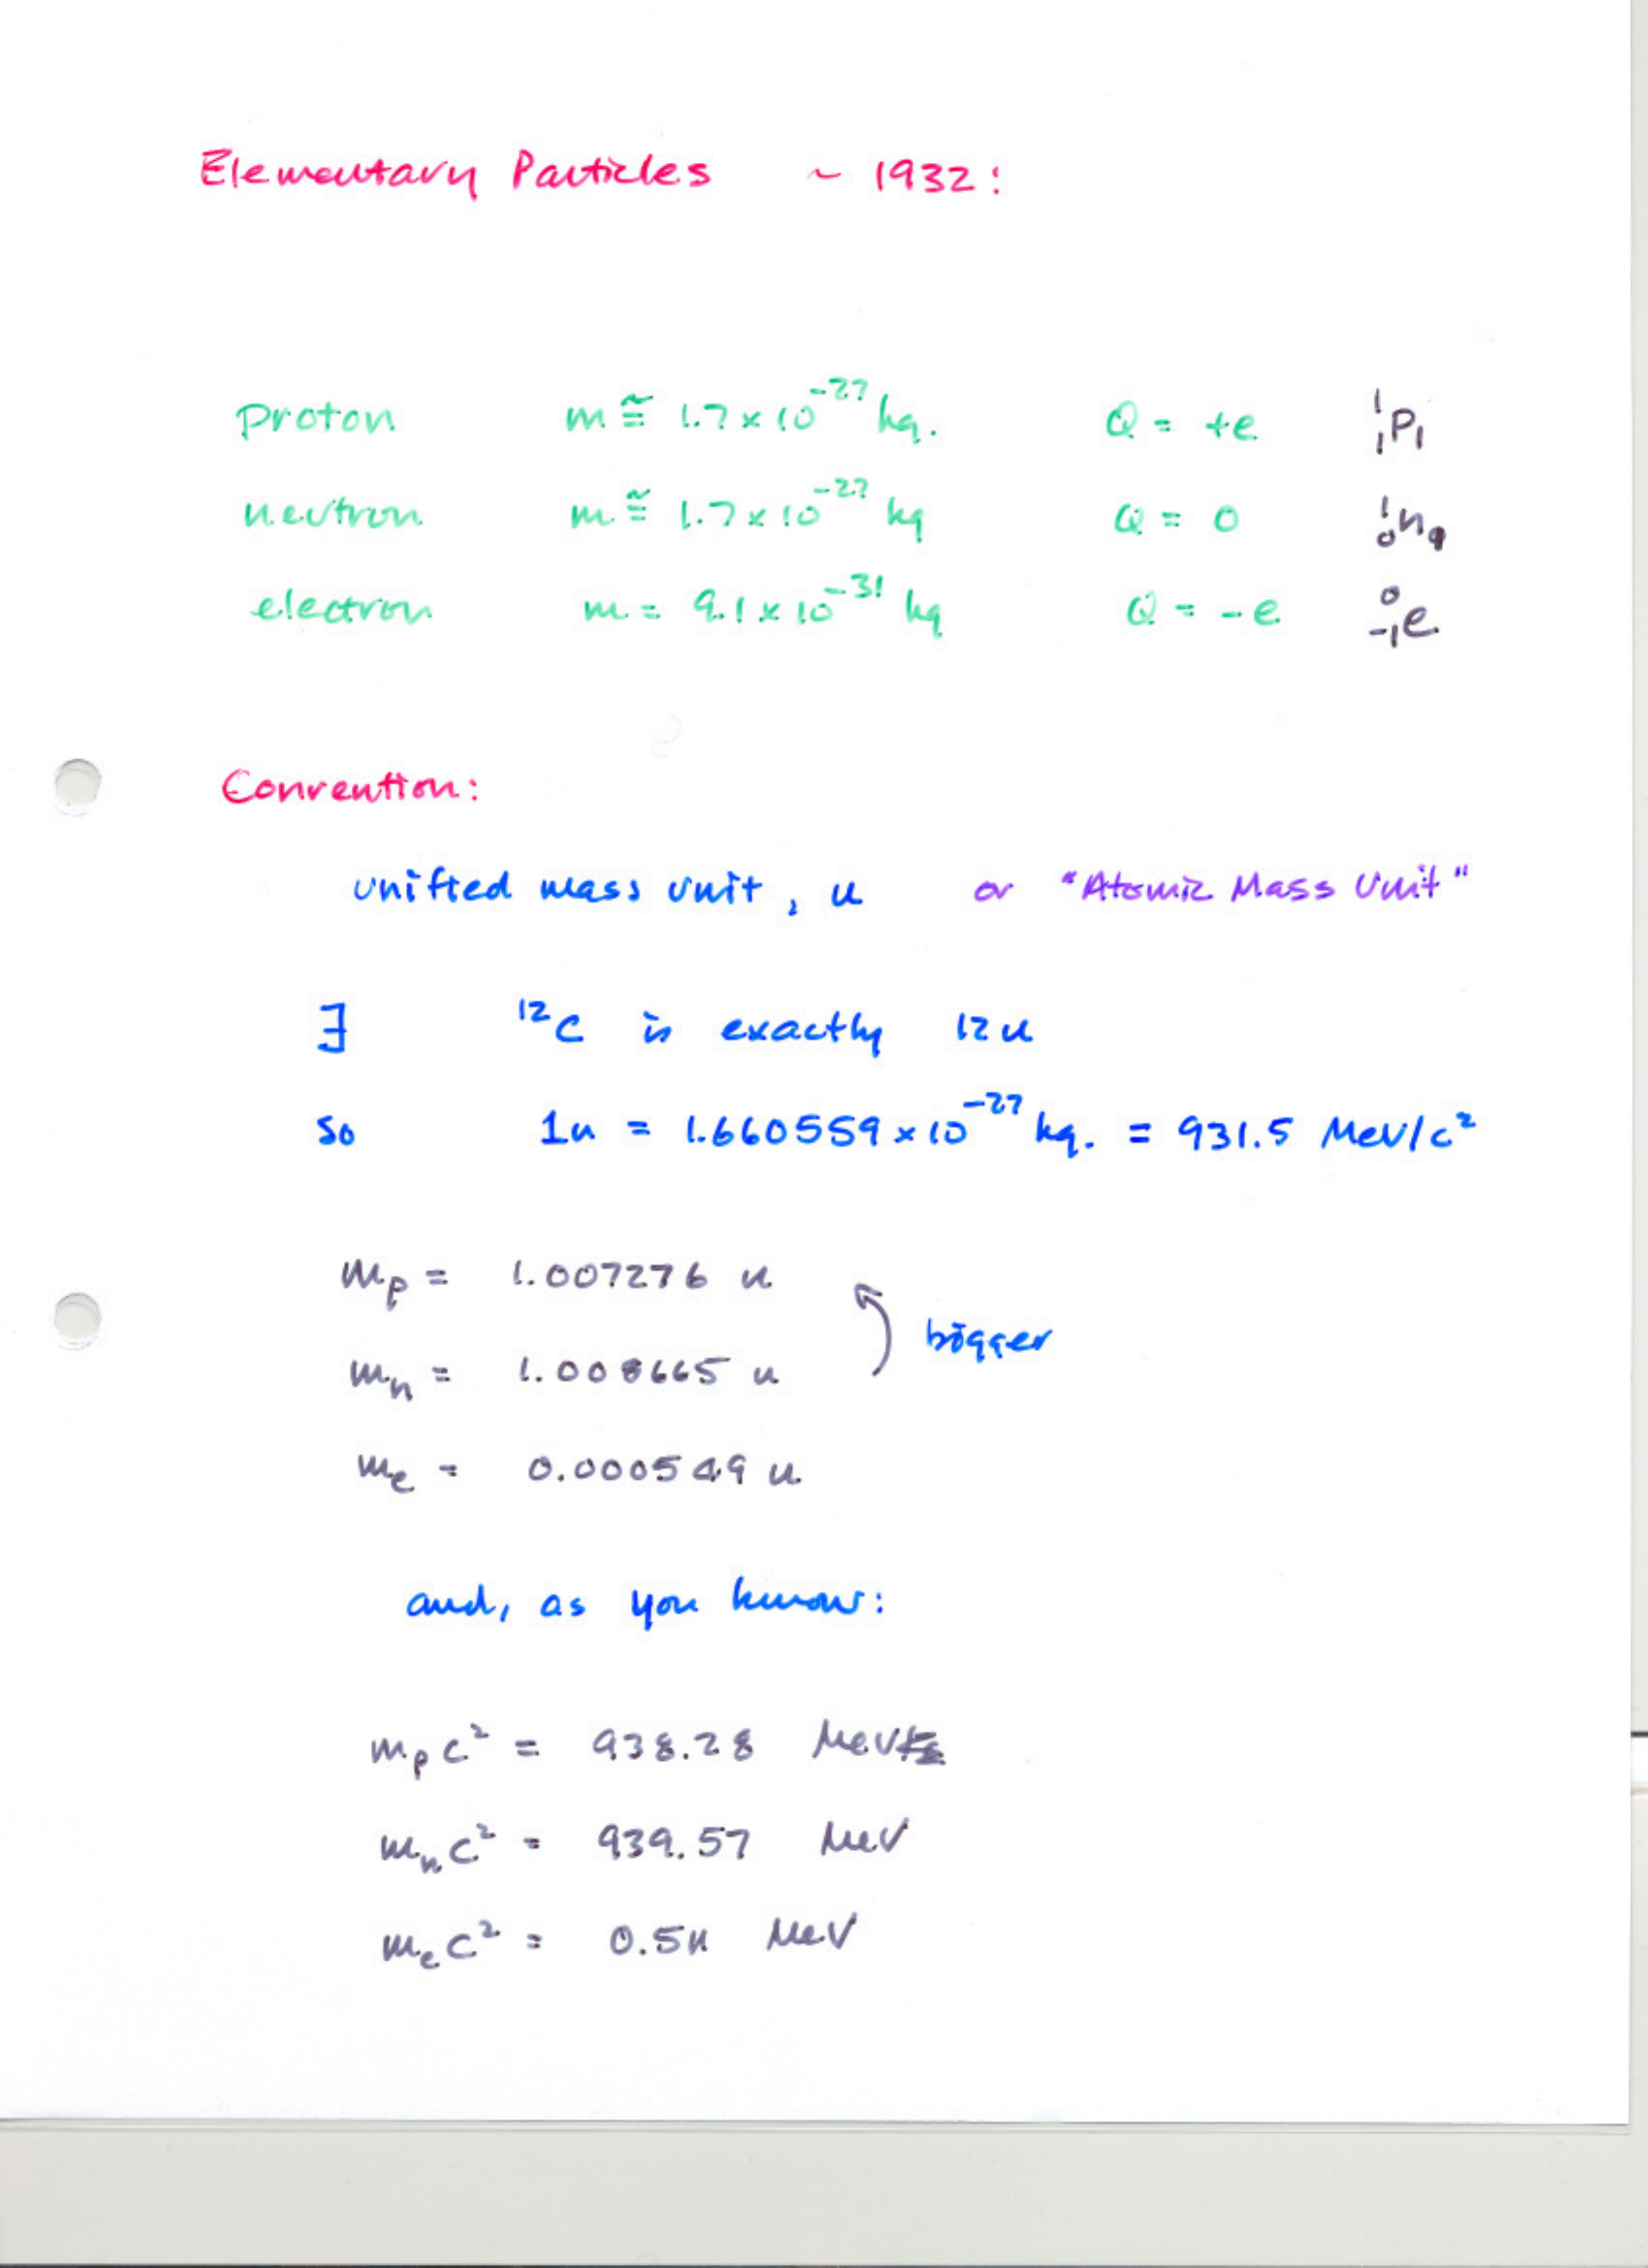 Elementary Particles ~ 1932:
proton m ≅ 1.7 × 10⁻²⁷ kg. Q = +e ¹₁p₁
neutron m ≅ 1.7 × 10⁻²⁷ kg Q = 0 ¹₀n
electron m = 9.1 × 10⁻³¹ kg Q = -e ⁰₋₁e
Convention:
unified mass unit, u or "Atomic Mass Unit"
∃ ¹²C is exactly 12u
so 1u = 1.660559 × 10⁻²⁷ kg. = 931.5 MeV/c²
mₚ = 1.007276 u
bigger
mₙ = 1.008665 u
mₑ = 0.000549 u
and, as you know:
mₚc² = 938.28 MeV
mₙc² = 939.57 MeV
mₑc² = 0.511 MeV